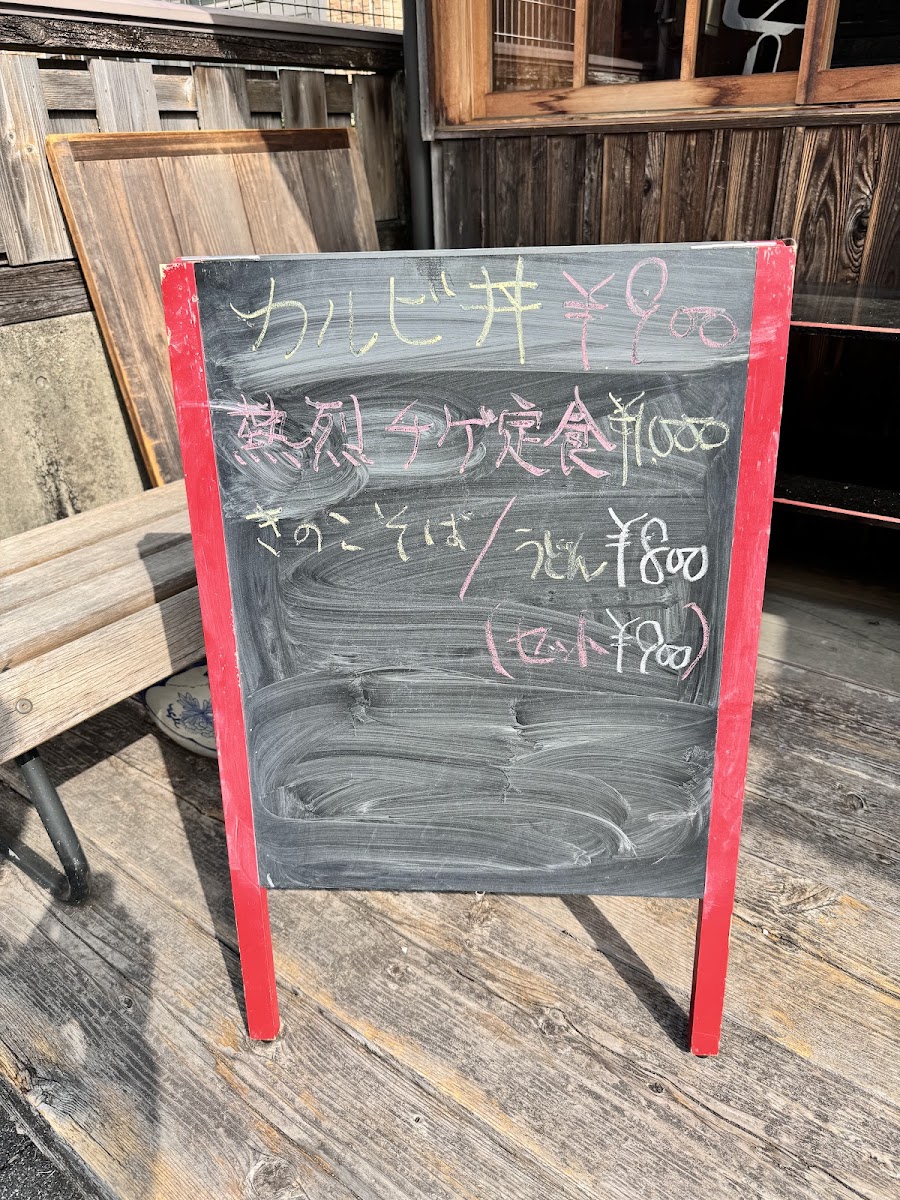 カルビ丼 ¥900
熱烈チゲ定食 ¥1,000
きのこそば/うどん ¥800
(セット ¥900)